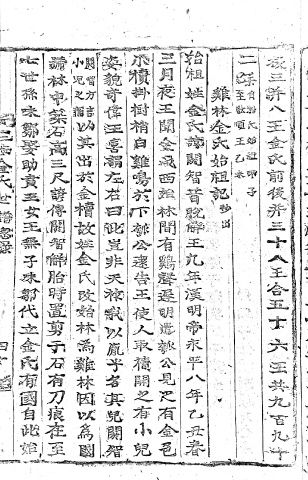 王金氏前後并三十八王合五十六王共九百九年
二
雞林金氏始祖記 抄出
始祖姓金氏諱閼智昔脫解王九年漢明帝永平八年乙丑春
三月夜王聞金城西始林間有鷄聲遲明遣瓠公見之有金色
小櫝掛樹梢白雞鳴於下瓠公還告王使人取櫝開之有小兒
姿貌奇偉王喜謂左右曰此豈非天祿我以胤乎名其兒閼智
以其出於金櫝故姓金氏改始林為雞林因以為國
號林中築石高三尺諺傳閼智解胎時置剪子石有刀痕在至
七世孫味鄒娶助賁王女王無子味鄒代立金氏有國自此始